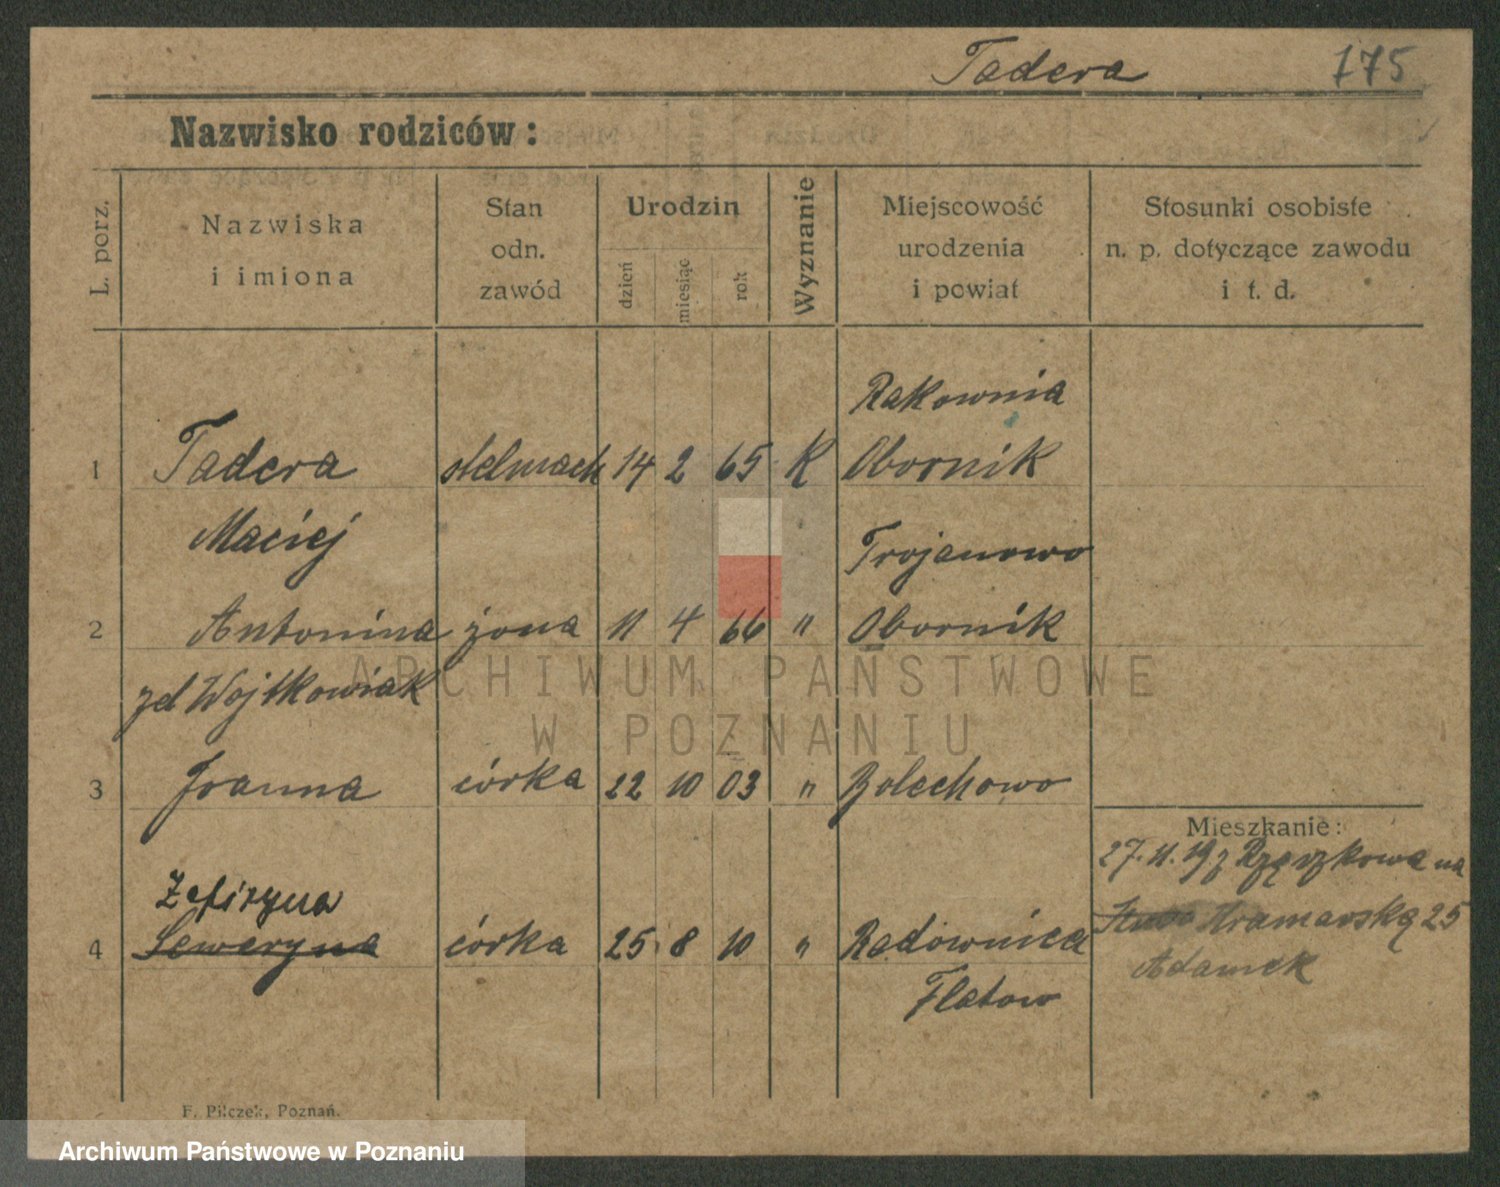 Tadera 175
Nazwisko rodziców :
L. porz.
Nazwiska
i imiona
Stan
odn.
zawód
Urodzin
dzień
miesiąc
rok
Wyznanie
Miejscowość
urodzenia
i powiat
Stosunki osobiste
n. p. dotyczące zawodu
i t. d.
Rakownia
1 Tadera stelmach 14 2 65 K Obornik
Maciej
Trojanowo
2 Antonina żona 11 4 66 " Obornik
zd Wojtkowiak
3 Joanna córka 22 10 03 " Bolechowo
Mieszkanie :
27. 11. 19 z Rzęszkowa na
Zefiryna
Kramarską 25
4 Seweryna córka 25 8 10 " Radownica
Adamek
Flatow
F. Pilczek, Poznań.
ARCHIWUM PAŃSTWOWE
W POZNANIU
Archiwum Państwowe w Poznaniu